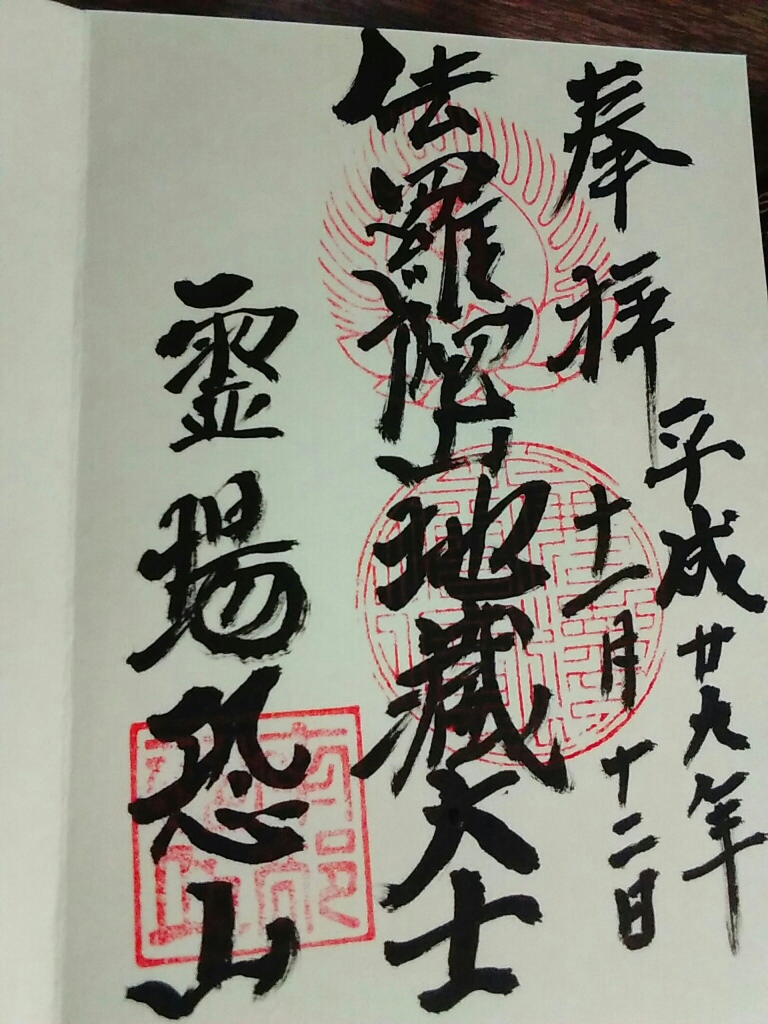 奉拝
平成廿九年
十一月十二日
伽羅陀山地蔵大士
霊場恐山